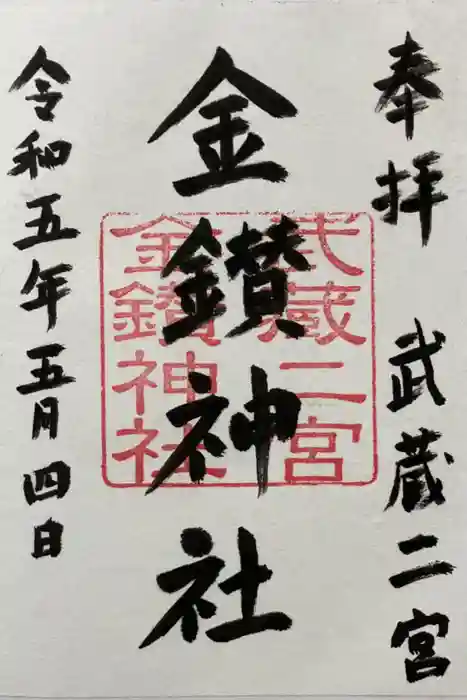 奉拝 武蔵二宮
金鑚神社
武蔵二宮
金鑚神社
令和五年五月四日